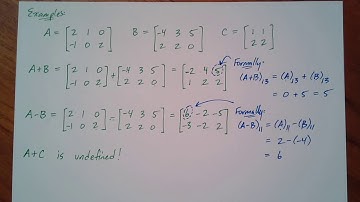 Examples:
A = [2 1 0; -1 0 2] B = [-4 3 5; 2 2 0] C = [1 1; 2 2]
A+B = [2 1 0; -1 0 2] + [-4 3 5; 2 2 0] = [-2 4 5; 1 2 2]
Formally:
(A+B)₁₃ = (A)₁₃ + (B)₁₃
= 0 + 5 = 5
A-B = [2 1 0; -1 0 2] - [-4 3 5; 2 2 0] = [6 -2 -5; -3 -2 2]
Formally:
(A-B)₁₁ = (A)₁₁ - (B)₁₁
= 2 - (-4)
= 6
A+C is undefined!